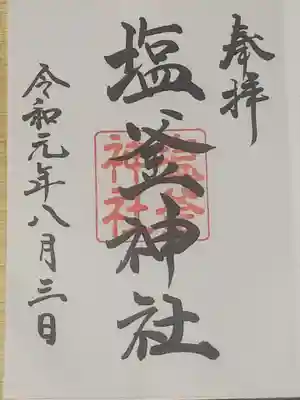 奉拝
塩釜神社
塩釜
神社
令和元年八月三日